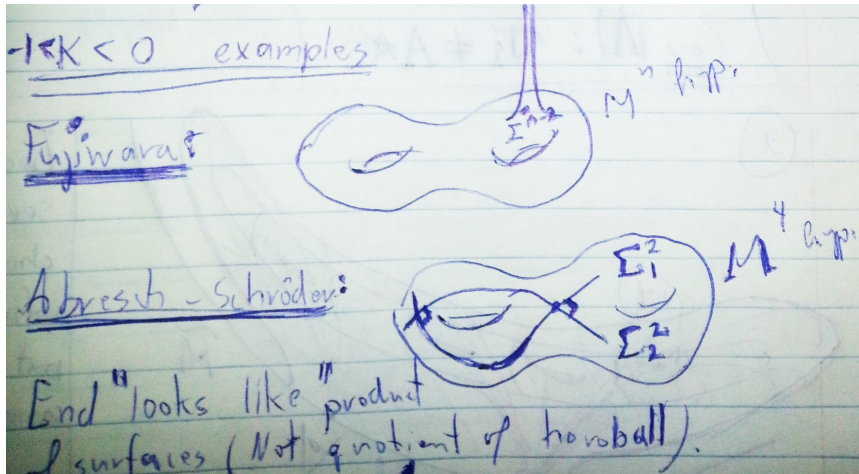 -1<K<0 examples
Σⁿ⁻²
Mⁿ hyp.
Fujiwara:
Σ₁²
M⁴ hyp.
Abresch-Schröder:
Σ₂²
End "looks like" product
of surfaces (Not quotient of horoball).